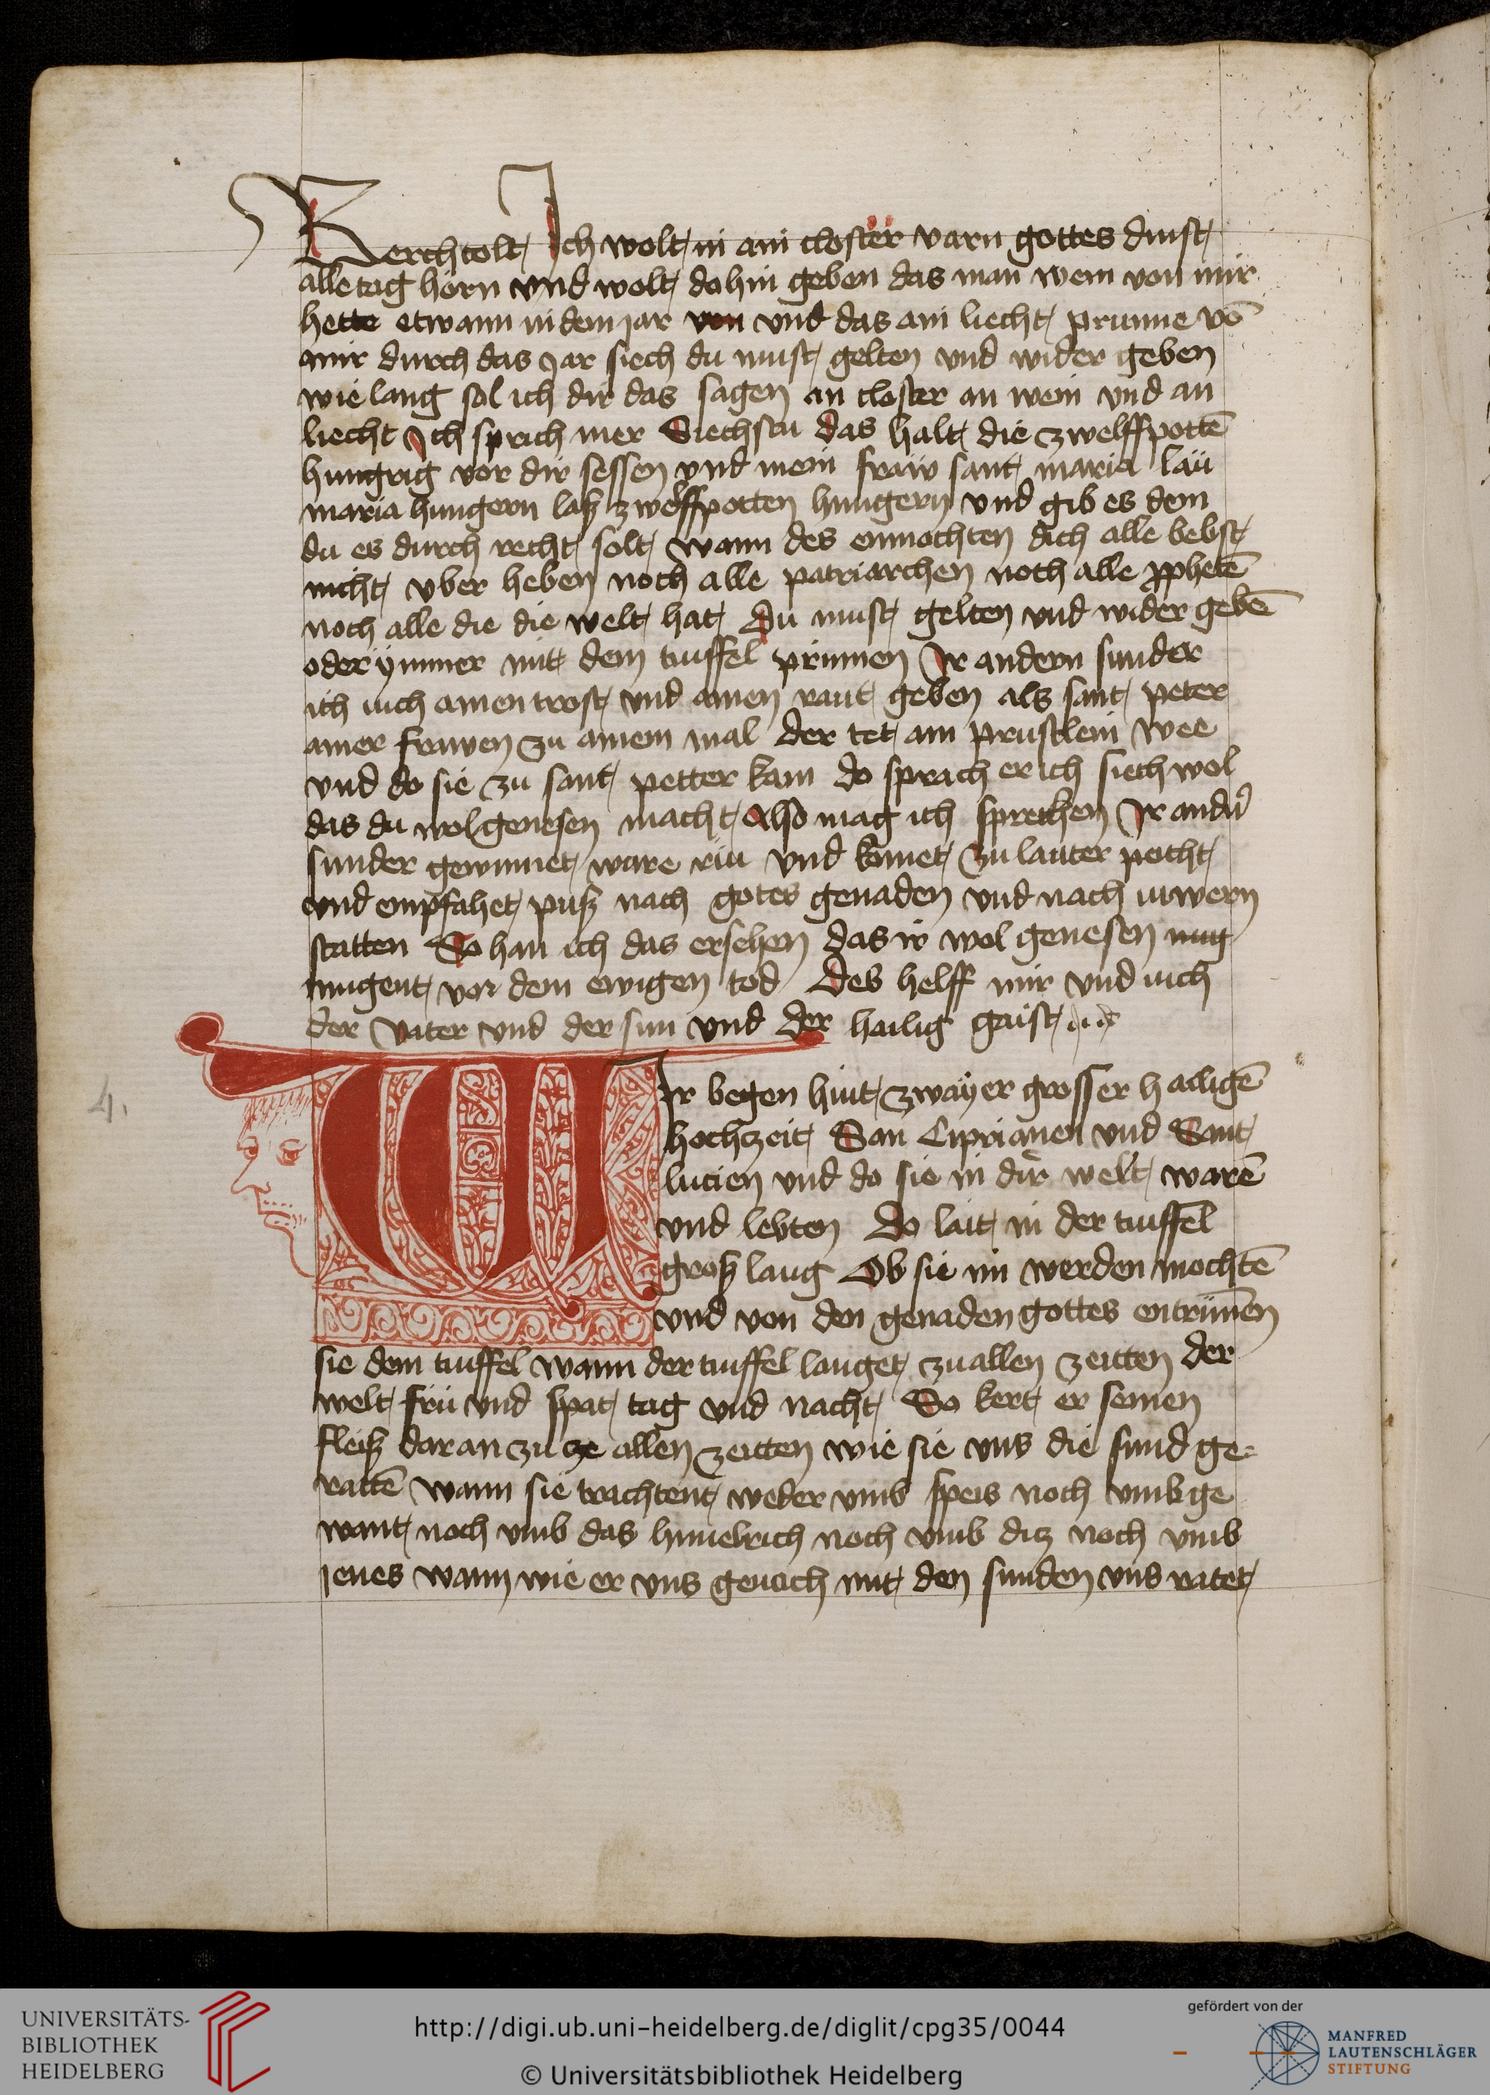 Berchtolt Ich wolt in ain closter varn gottes dinst
alle tag horn vnd wolt do hin geben das man wein von mir
hette etwann in dem jar von vnd das ain liecht prunne vō
mir durch das Jar siech du must gelten vnd wider geben
wie lang sol ich dir das sagen an closter an wein vnd an
liecht Ich sprich mer Siechstu das halt die zwelffpottē
hungrig vor dir sessen vnd mein fraw sant maria laū
maria hungern laß zwelffpotten hungern vnd gib es dem
du es durch recht solt wann des enmochten dich alle bebst
nicht vber heben noch alle patriarchen noch alle ppphetē
noch alle die die welt hat Du must gelten vnd wider gebē
oder ymmer mit dem tiuffel prinnen Ir andern sunder
ich iuch ainen trost vnd ainen raut geben als sant peter
ainer frawen zu ainem mal der tet ain prustlein wee
vnd do sie zu sant petter kam do sprach er ich siech wol
das du wol genesen macht Also mag ich sprechen Ir andn̄
sunder gewinnet ware riu vnd komet zu lauter peicht
vnd empfahet puß nach gotes genaden vnd nach iuwern
statten So han ich das ersehen das ir wol genesen mug
mugent vor dem ewigen tod Des helff mir vnd iuch
der Vater vnd der sun vnd der hailig gaist
4.
Wir begen hiut zwayer grosser hailigē
hochzeit San Ciprianen vnd Sant
lucien vnd do sie in dir welt warē
vnd lebten Do lait in der tiuffel
groß laug Ob sie im werden mochtē
vnd von den genaden gottes entrunnēn
sie dem tiuffel wann der tiuffel lauget zu allen zeitten der
welt fru vnd spat tag vnd nacht So kert er seinen
fleiß dar an zu ze allen zeitten wie sie vns die sund ge-
rattē wann sie trachtent weder vmb speis noch vmb ge
want noch vmb das himelrich noch vmb ditz noch vmb
jenes wann wie er vns genoich mit den sunden vns ratet
UNIVERSITÄTS-
BIBLIOTHEK
HEIDELBERG
http://digi.ub.uni-heidelberg.de/diglit/cpg35/0044
© Universitätsbibliothek Heidelberg
gefördert von der
MANFRED
LAUTENSCHLÄGER
STIFTUNG